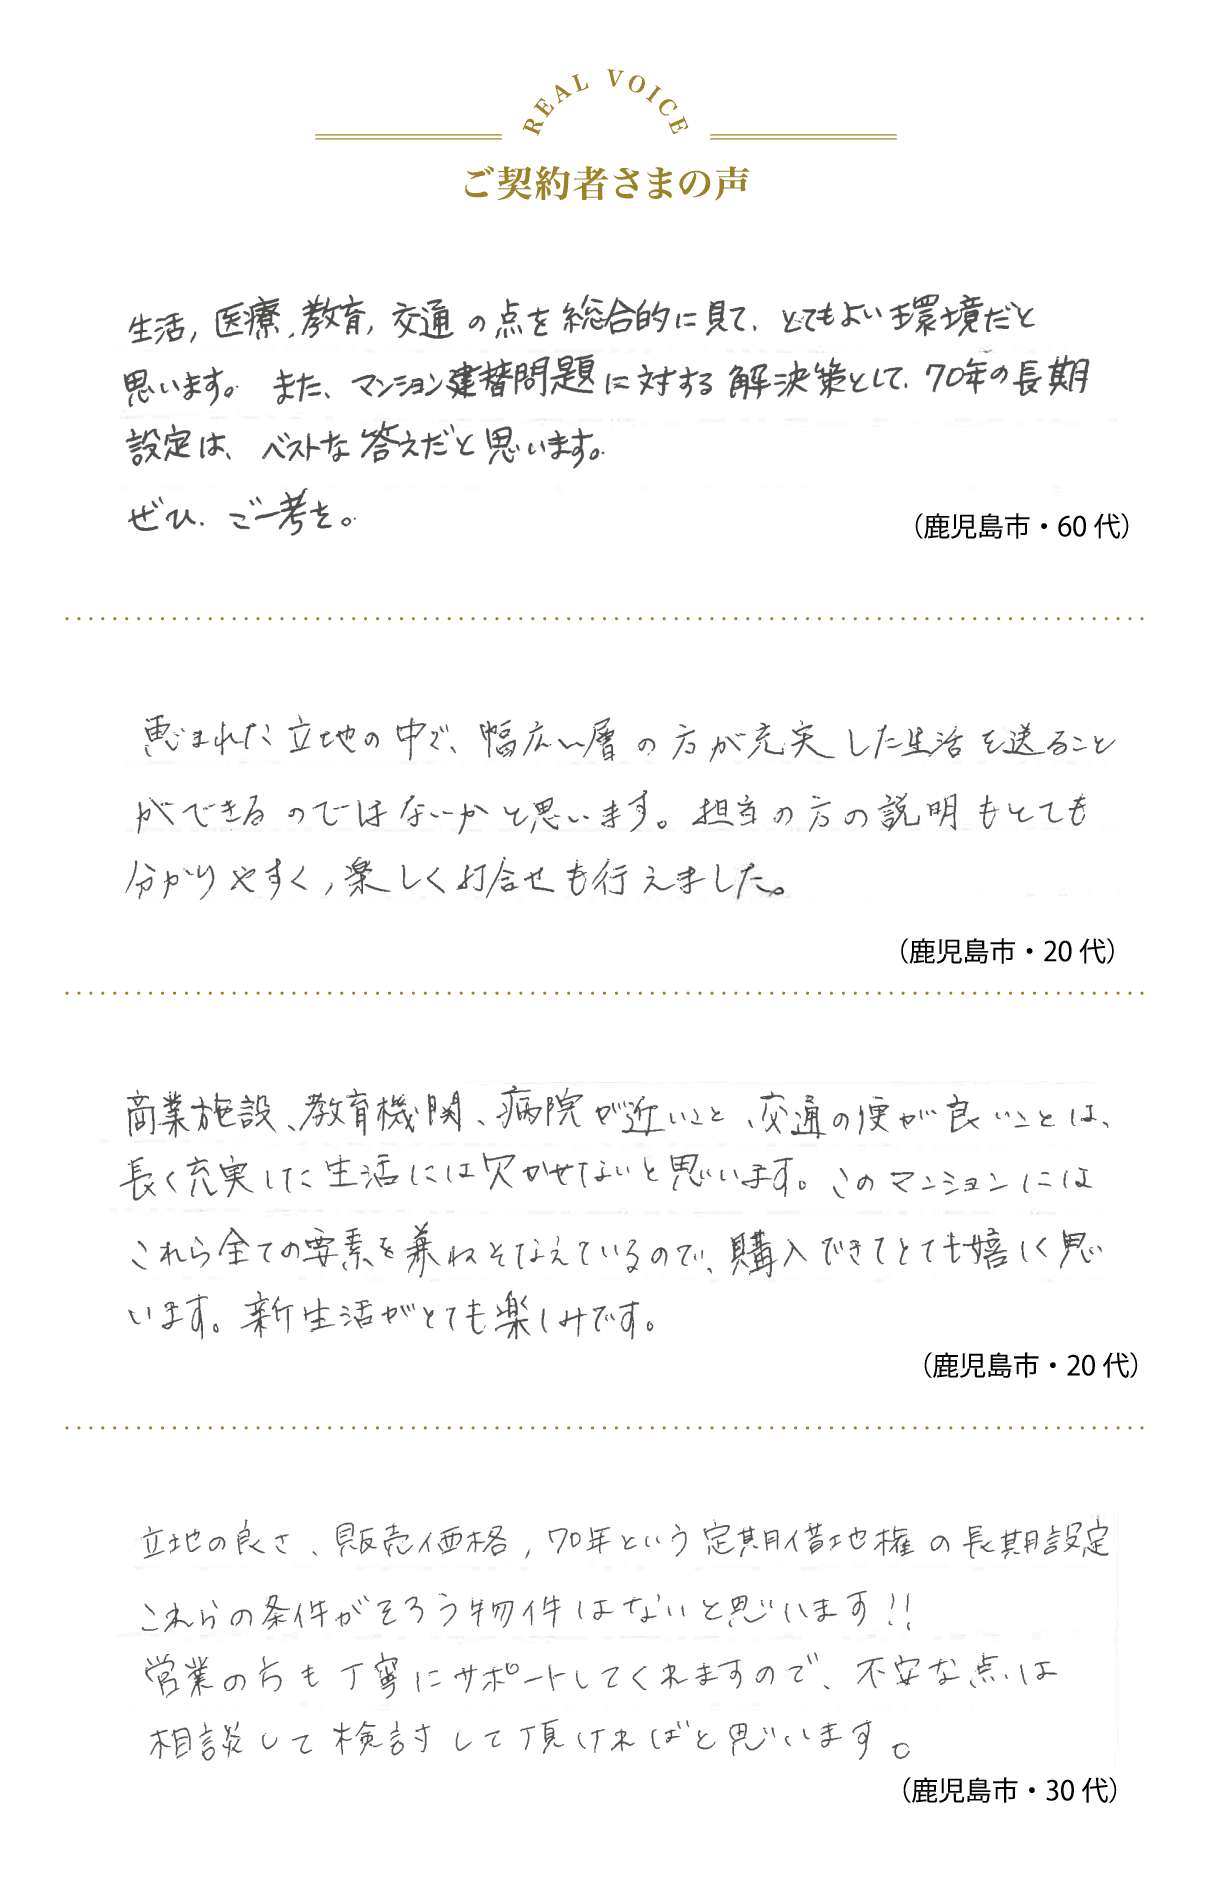 REAL VOICE
ご契約者さまの声
生活,医療,教育,交通の点を総合的に見て、とてもよい環境だと
思います。また、マンション建替問題に対する解決策として、70年の長期
設定は、ベストな答えだと思います。
ぜひ、ご一考を。
（鹿児島市・60代）
恵まれた立地の中で、幅広い層の方が充実した生活を送ること
ができるのではないかと思います。担当の方の説明もとても
分かりやすく,楽しく打合せも行えました。
（鹿児島市・20代）
商業施設、教育機関、病院が近いこと、交通の便が良いことは、
長く充実した生活には欠かせないと思います。このマンションには
これら全ての要素を兼ねそなえているので、購入できてとても嬉しく思い
います。新生活がとても楽しみです。
（鹿児島市・20代）
立地の良さ、販売価格,70年という定期借地権の長期設定
これらの条件がそろう物件はないと思います!!
営業の方も丁寧にサポートしてくれますので、不安な点は
相談して検討して頂ければと思います。
（鹿児島市・30代）